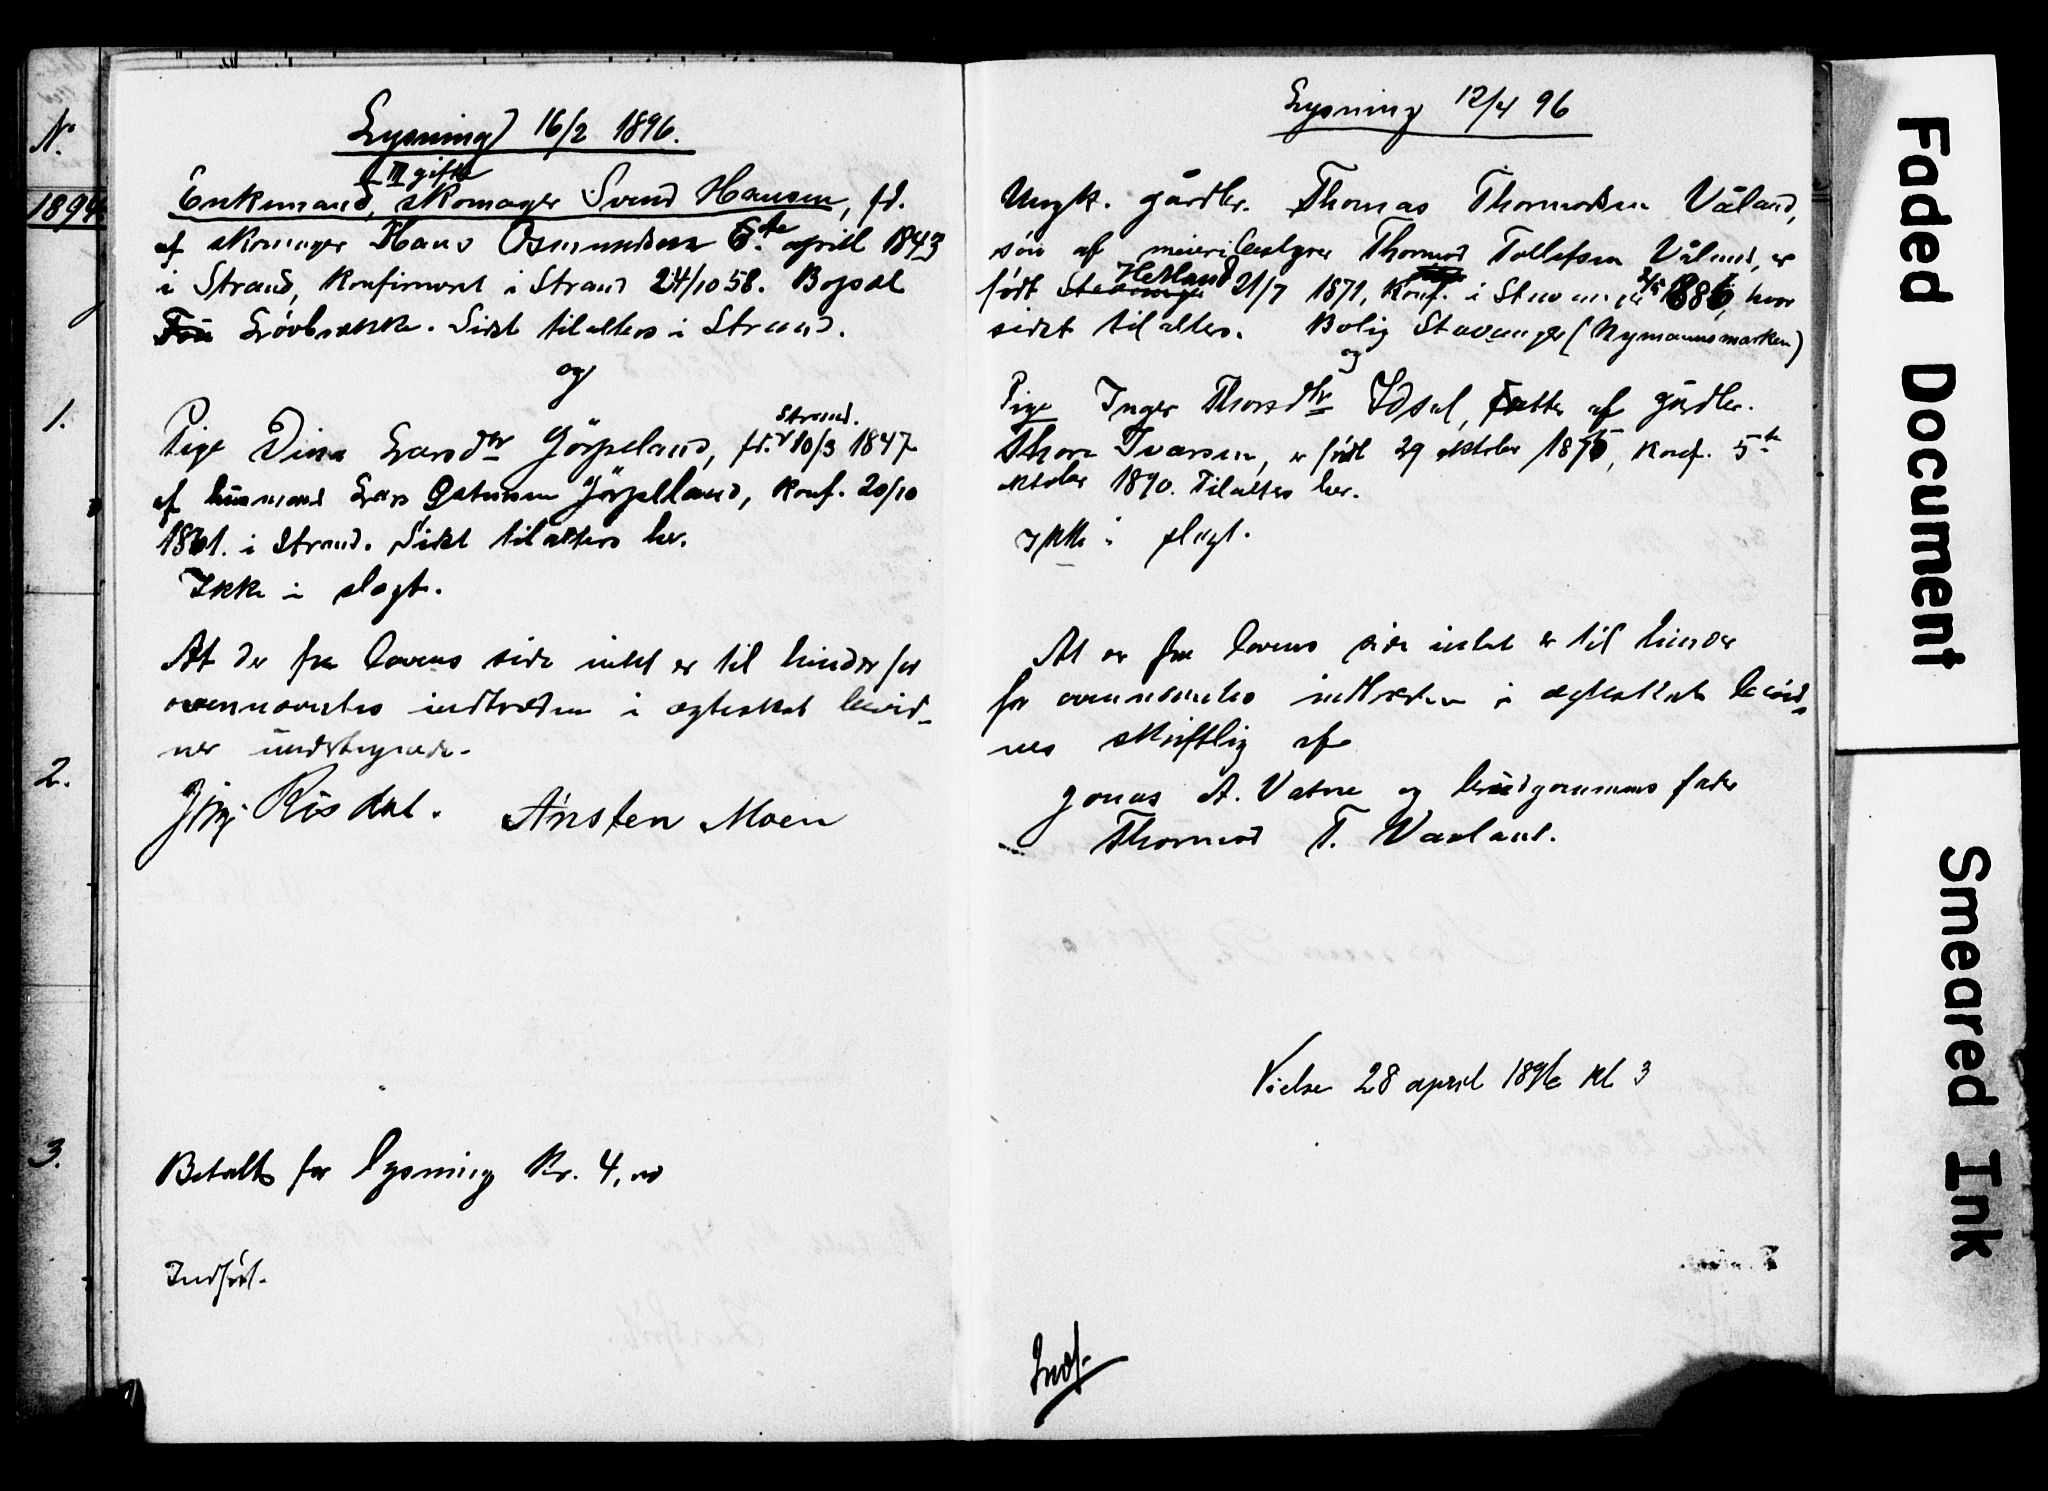 N.
1894
1.
2.
3.
Lysning 16/2 1896.
III gifte
Enkemand, skomager Svend Hansen, fd.
af skomager Hans Osmundsen 6.te april 1843
i Strand, konfirmeret i Strand 24/10 58. Bopæl
Løvbrække. Sidst tilalters i Strand.
og
Strand.
Pige Dina Larsdtr Jørpeland, fd. 10/3 1847
af husmand Lars Østensen Jørpeland, konf. 20/10
1861. i Strand. Sidst tilalters her.
Ikke i slægt.
At der fra lovens side intet er til hinder for
ovennævntes indtræden i ægteskab bevid-
ner undertegnede.
Risdal. Ansten Moen
Betalt for lysning Kr. 4,00
Indført.
Lysning 12/4 96
Ungk. gårdbr. Thomas Thormodsen Våland,
søn af meieribestyrer Thormod Tollefsen Våland, er
født Stavanger Hetland 21/7 1871, konf. i Stavanger 1886, hvor
sidst tilalters. Bolig Stavanger (Nymannsmarken)
og
Pige Inger Thorsdtr Idsal, datter af gårdbr.
Thore Ivarsen, er født 29 oktober 1875, konf. 5te
oktober 1890. Tilalters her.
Ikke i slægt.
At er fra lovens side intet er til hinder
for ovennævntes indtræden i ægteskab bevid-
nes skriftlig af
Jonas A. Vatne og brudgommens fader
Thormod T. Vaaland.
Vielse 28 april 1896 kl 3
Indf.
Faded Document
Smeared Ink